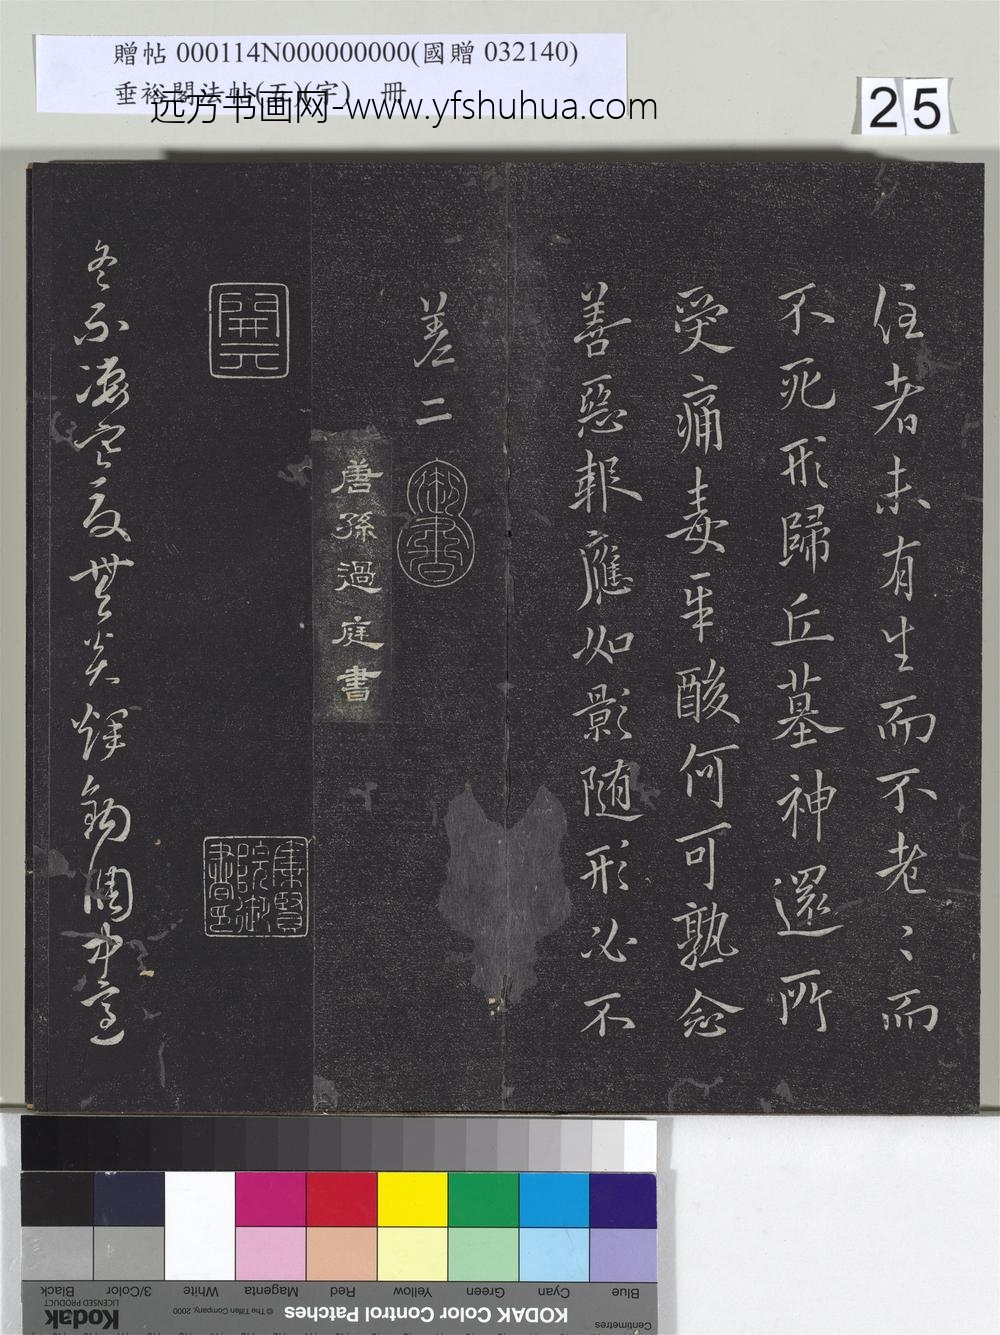 贈帖 000114N000000000(國贈 032140)
垂裕閣法帖(五)(字) 冊
远方书画网-www.yfshuhua.com
25
住者未有生而不老〻而
不死形歸丘墓神還所
受痛毒辛酸何可熟念
善惡報應如影随形必不
差二
御書
唐孫過庭書
開元
集賢院御書印
冬不淒寒夏無炎輝錫周中高
Blue
Cyan
Green
Yellow
Red
Magenta
White
3/Color
Black
Centimetres
KODAK Color Control Patches
© The Tiffen Company, 2000
Kodak
LICENSED PRODUCT